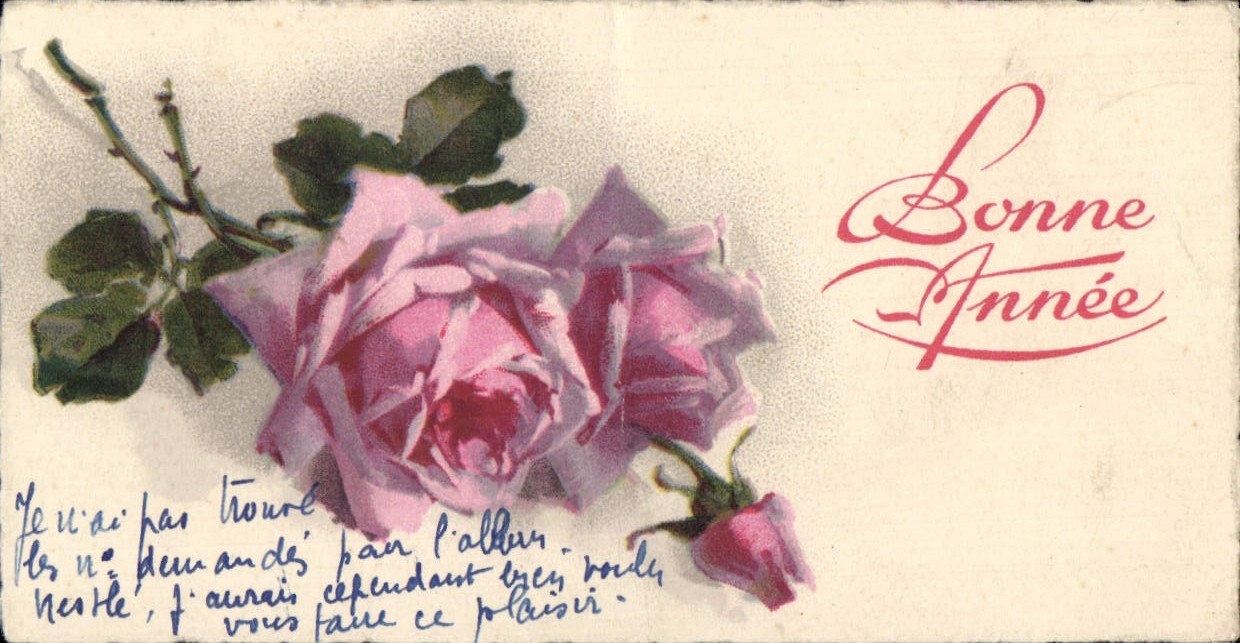 Bonne
Année
Je n'ai pas trouvé
les nos demandés pour l'album
Nestlé, j'aurais cependant bien voulu
vous faire ce plaisir.